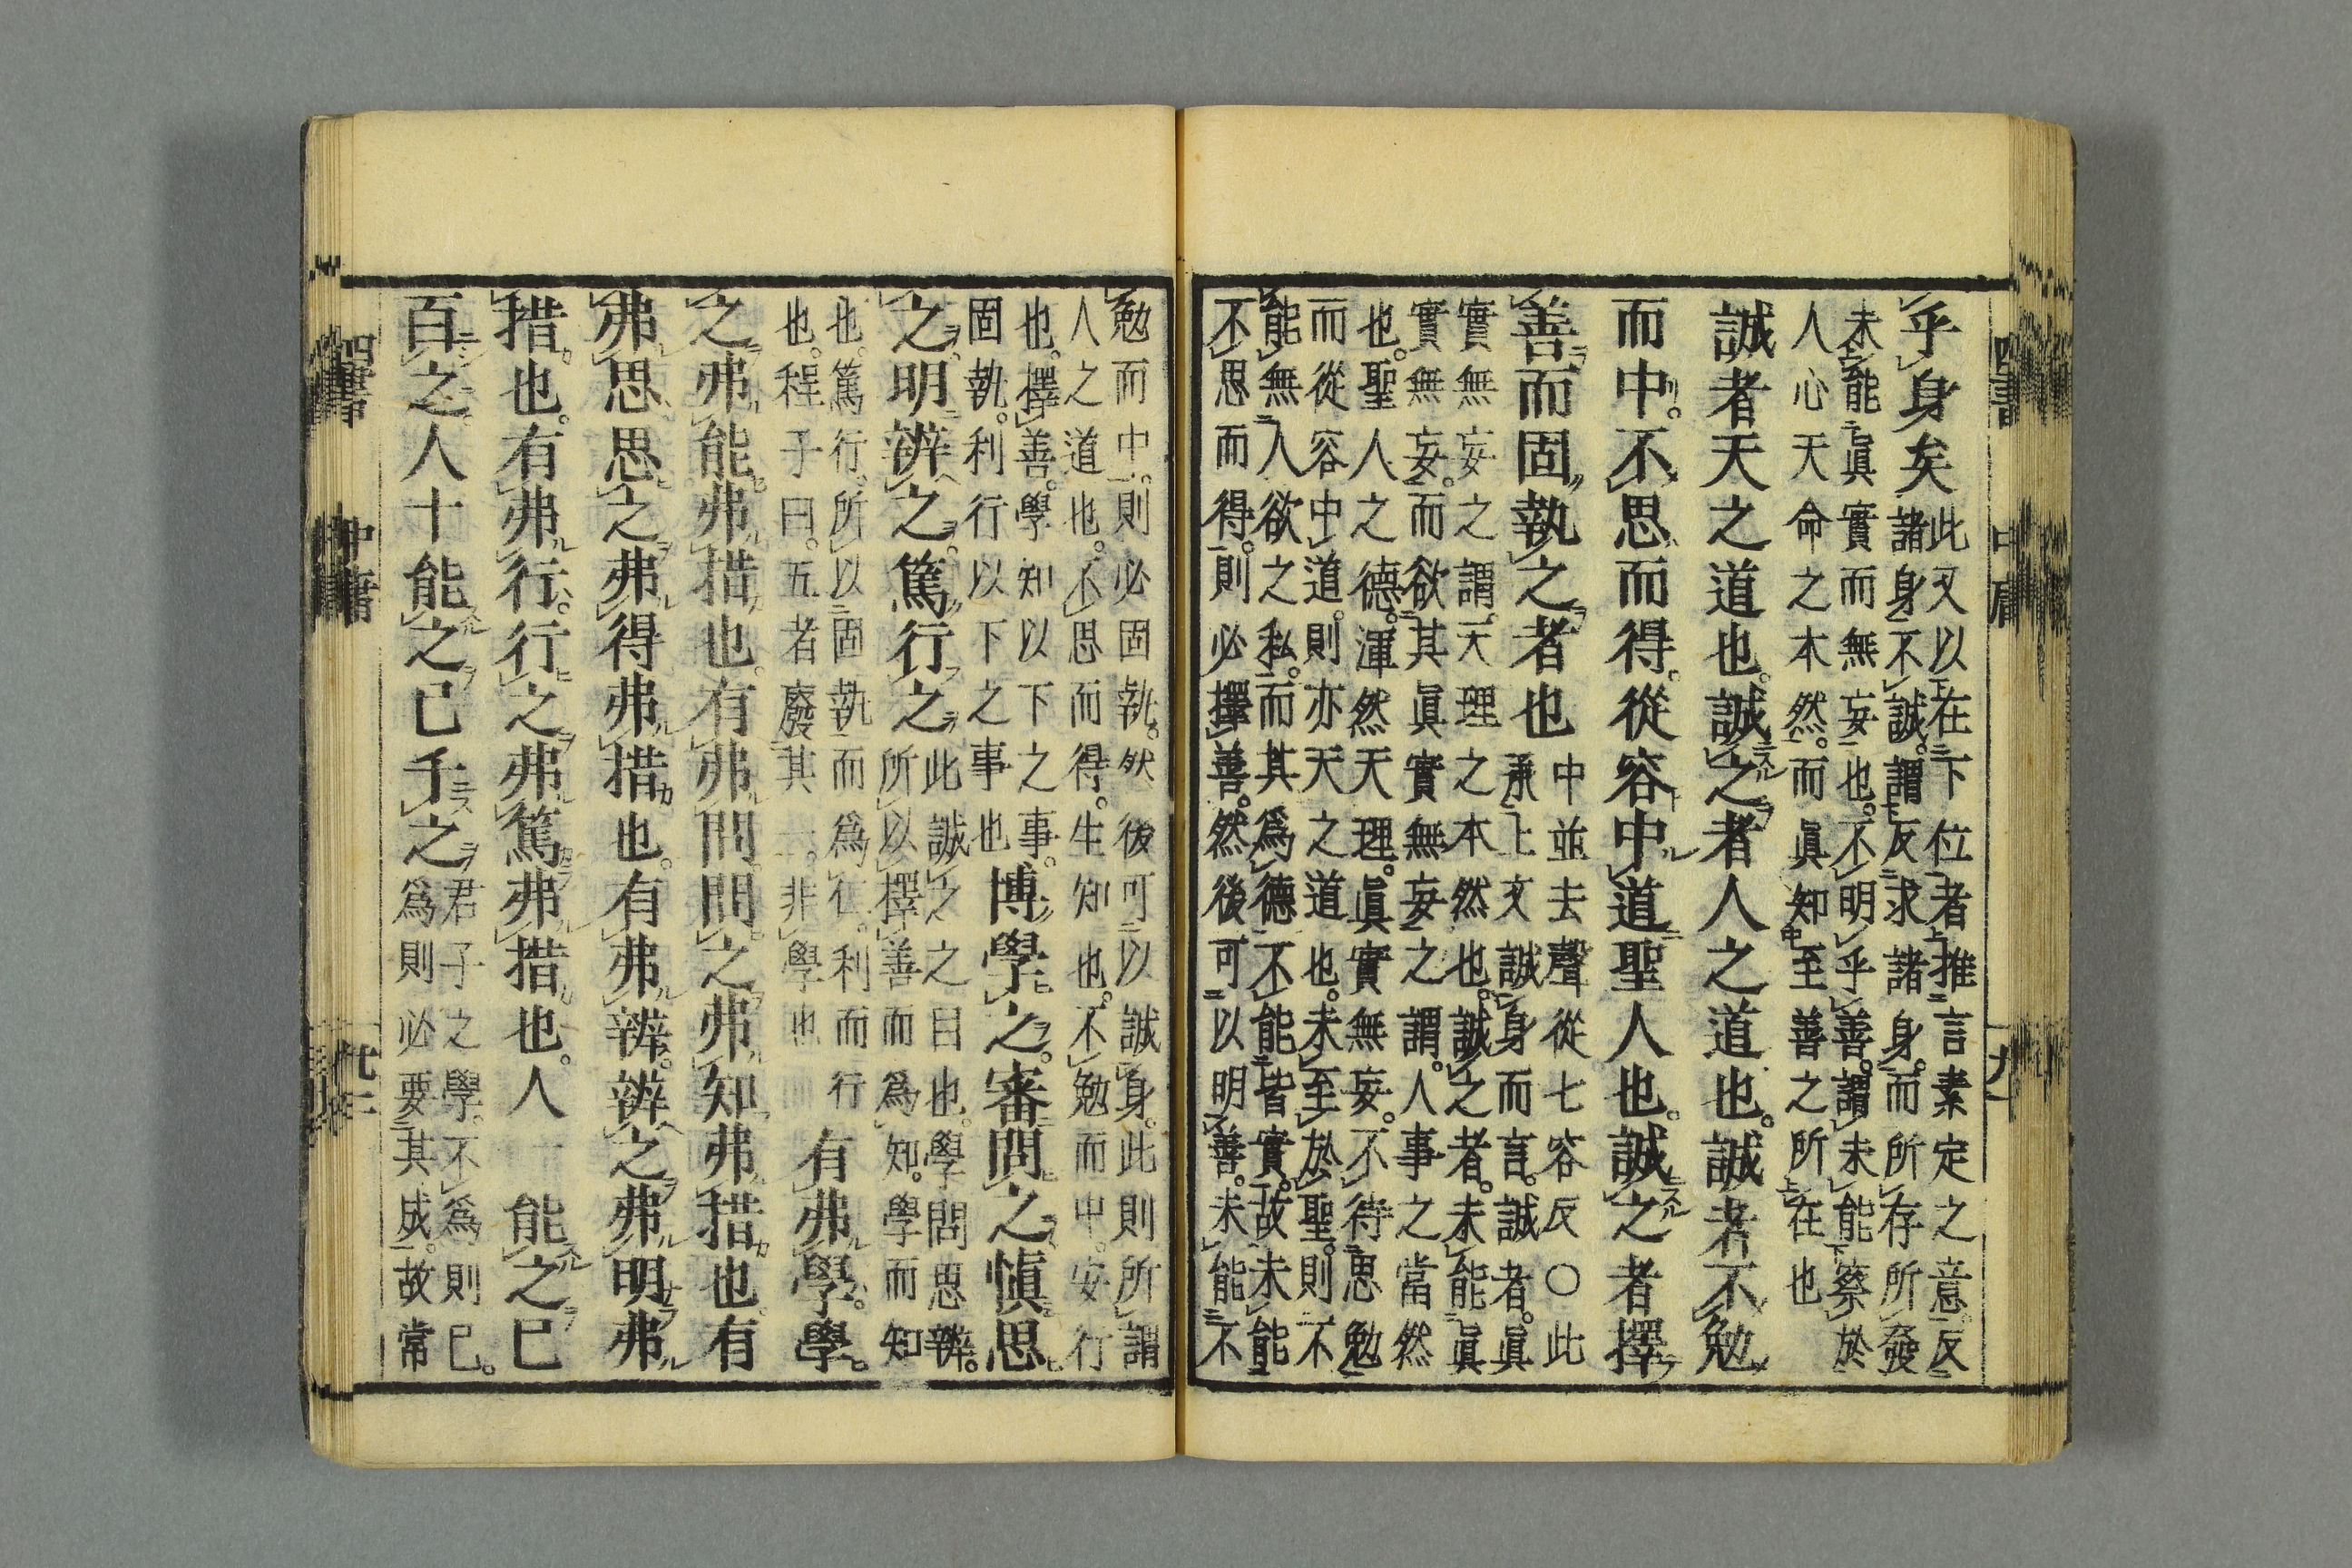 四書 中庸
乎身矣
此又以在下位者推言素定之意反
諸身不誠。謂反求諸身。而所存所發
未能眞實而無妄也。不明乎善。謂未能察於
人心天命之本然。而眞知至善之所在也
誠者天之道也。誠之者人之道也。誠者不勉
而中。不思而得。從容中道聖人也。誠之者擇
善而固執之者也
中並去聲從七容反○此
承上文誠身而言。誠者。眞
實無妄之謂。天理之本然也。誠之者。未能眞
實無妄。而欲其眞實無妄之謂。人事之當然
也。聖人之德。渾然天理。眞實無妄。不待思勉
而從容中道。則亦天之道也。未至於聖。則不
能無人欲之私。而其爲德不能皆實。故未能
不思而得。則必擇善。然後可以明善。未能不
勉而中。則必固執。然後可以誠身。此則所謂
人之道也。不思而得。生知也。不勉而中。安行
也。擇善。學知以下之事。
固執。利行以下之事也
博學之。審問之愼思
之。明辨之。篤行之
此誠之之目也。學問思辨。
所以擇善而爲知。學而知
也。篤行。所以固執而爲仁。利而行
也。程子曰。五者廢其一。非學也
有弗學。學。
之弗能。弗措也。有弗問問之弗知弗措也。有
弗思思之弗得弗措也。有弗辨。辨之弗明弗
措也。有弗行。行之弗篤弗措也。人一能之已
百之。人十能之已千之
君子之學。不爲則已。
爲則必要其成。故常
四書 中庸